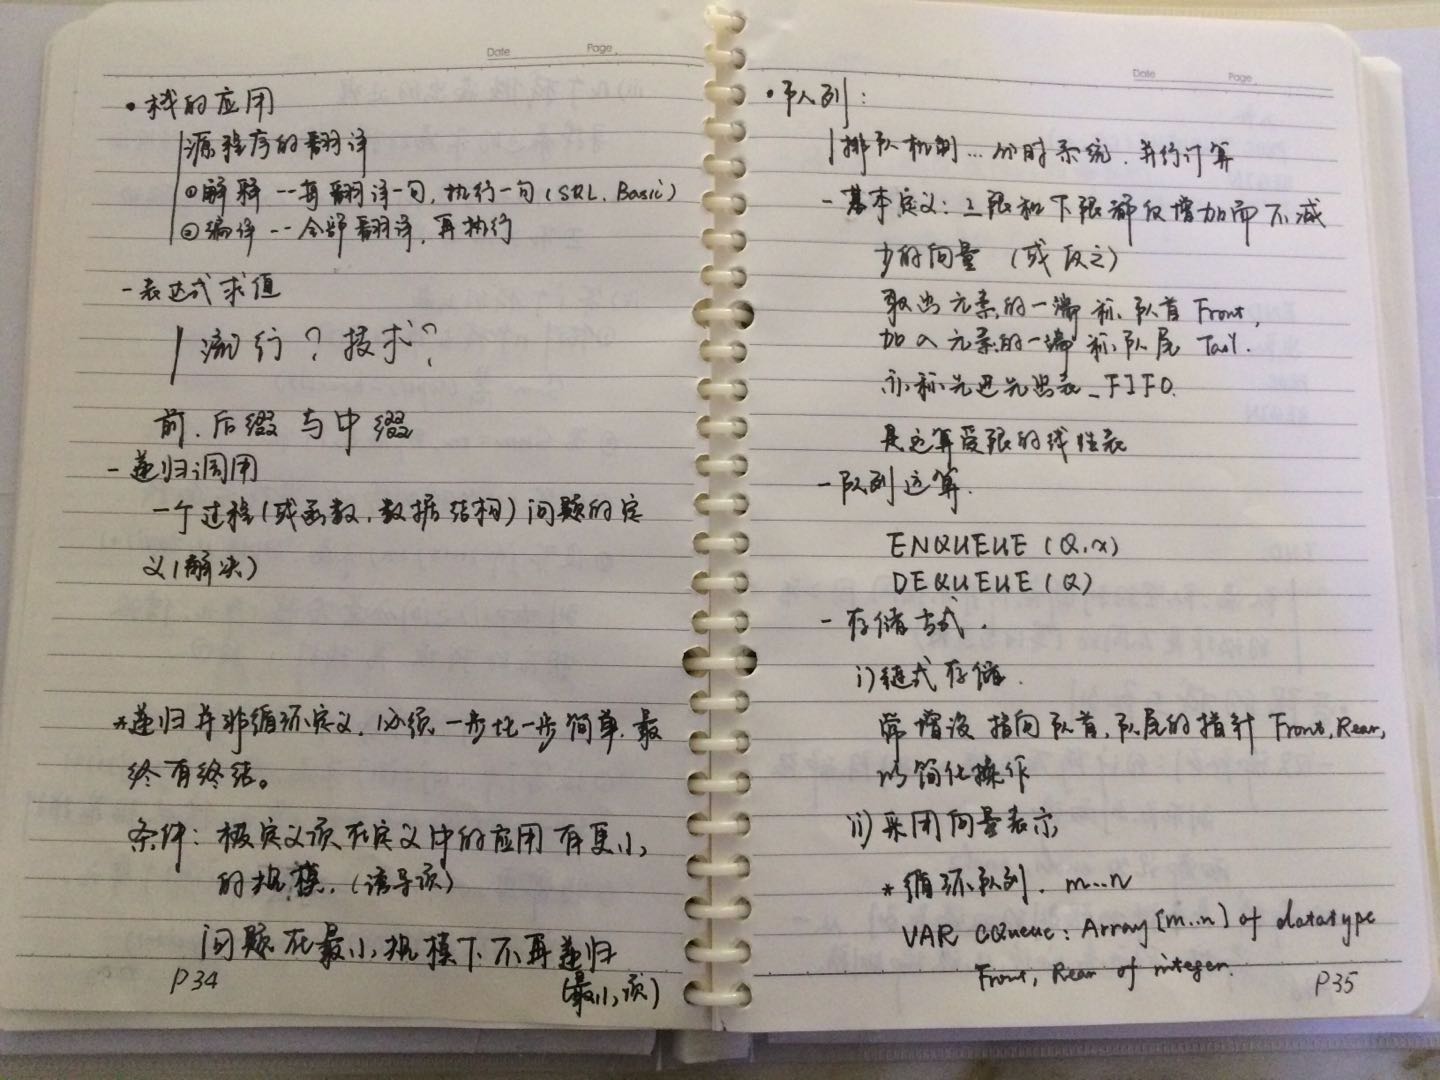 Date Page
• 栈的应用
源程序的翻译
①解释 -- 每翻译一句,执行一句(SRL, Basic)
②编译 -- 全部翻译,再执行
- 表达式求值
流行?技术?
前、后缀与中缀
- 递归调用
一个过程(或函数,数据结构)问题的定
义(解决)
*递归并非循环定义,必须一步比一步简单,最
终有终结。
条件: 被定义项在定义中的应用有更小
的规模.(诱导项)
问题在最小规模下不再递归
(最小项)
P34
Date Page
• 队列:
排队机制...分时系统.并行计算
- 基本定义: 上限和下限都仅增加而不减
少的向量 (或反之)
取出元素的一端称队首 Front,
加入元素的一端称队尾 Tail.
亦称先进先出表_FIFO.
是运算受限的线性表
- 队列运算.
ENQUEUE (Q,x)
DEQUEUE (Q)
- 存储方式.
i)链式存储.
常增设指向队首,队尾的指针 Front, Rear,
以简化操作
ii)采用向量表示
*循环队列. m..n
VAR CQueue: Array[m..n] of datatype
Front, Rear of integer.
P35